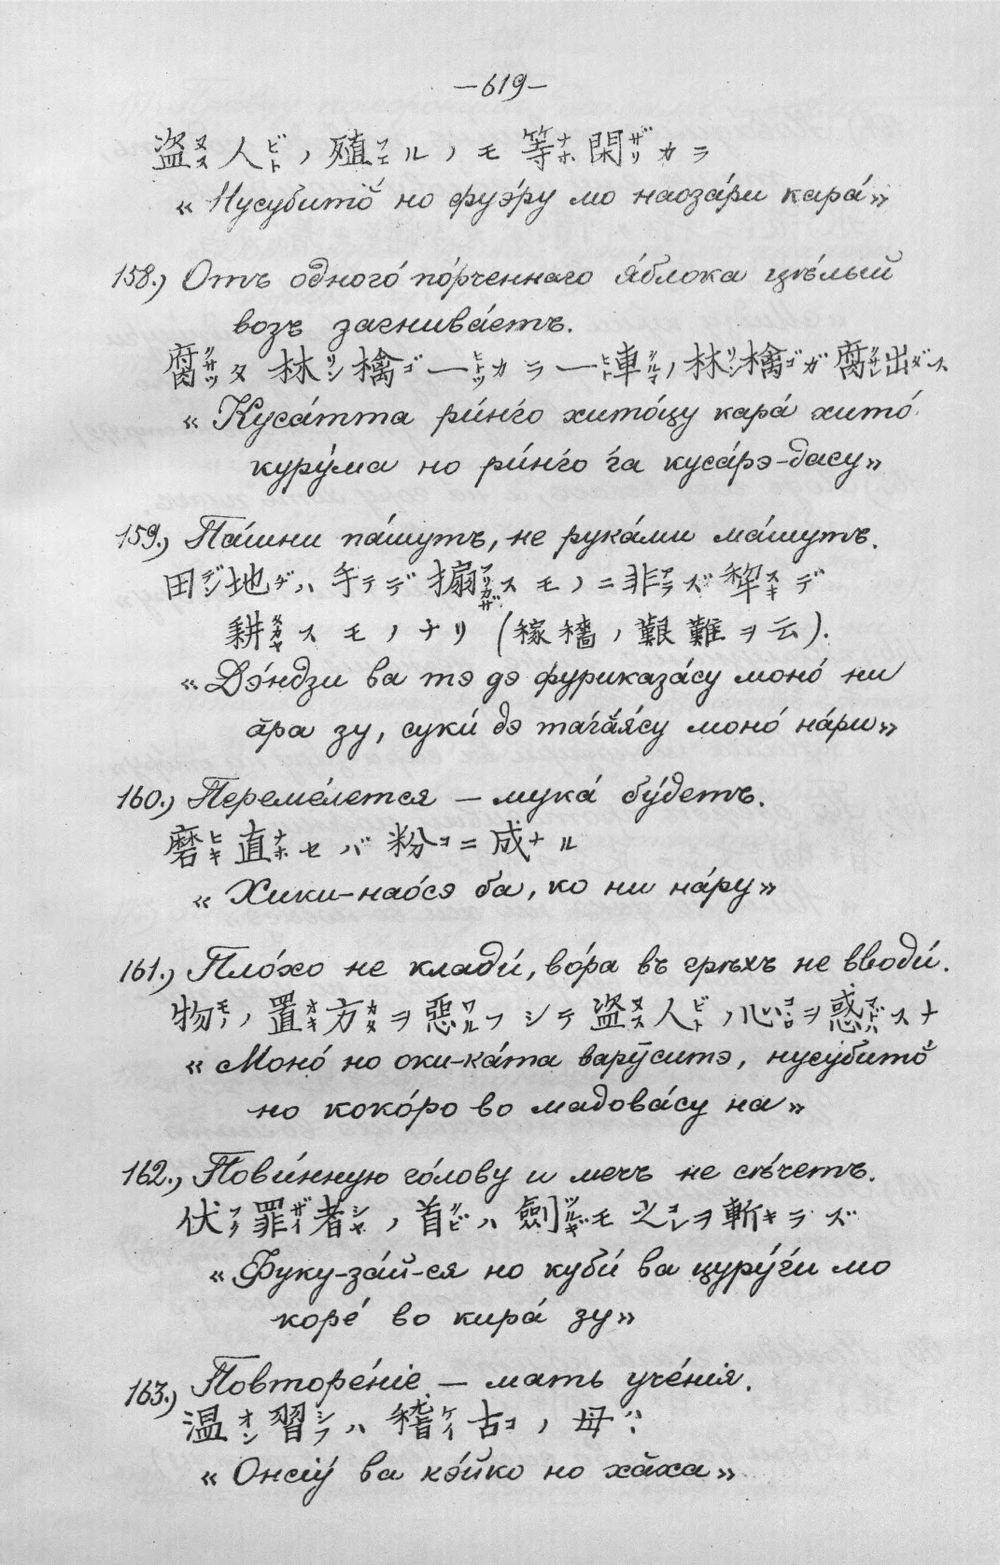 —619—
盗ヌス人ビトノ殖フエルノモ等ナホ閑ザリカラ
«Нусубито̆ но фуэ́ру мо наоза́ри кара́»
158.) Отъ одного́ по́рченнаго я́блока цѣ́лый
возъ загнива́етъ.
腐クサッタ林リン檎ゴ一ヒトツカラ一ヒト車クルマノ林リン檎ゴガ腐クサレ出ダス
«Куса́тта ри́нг̇о хито́цу кара́ хито́
куру́ма но ри́нг̇о г̇а куса́рэ-дасу»
159.) Па́шни па́шутъ, не рука́ми ма́шутъ.
田デン地ヂハ手テデ搧フリカザスモノニ非アラズ犂スキデ
耕タガヤスモノナリ (稼穡ノ艱難ヲ云).
«Дэ́ндзи ва тэ дэ фуриказа́су моно́ ни
ӑра зу, суки́ дэ таг̇ая́су моно́ на́ри»
160.) Переме́лется — мука́ бу́детъ.
磨ヒキ直ナホセバ粉コニ成ナル
«Хики-нао́сэ ба, ко ни на́ру»
161.) Пло́хо не клади́, во́ра въ грѣхъ не вводи́.
物モノノ置オキ方カタヲ惡ワルフシテ盗ヌス人ビトノ心ココロヲ惑マドハスナ
«Моно́ но оки-ка́та варӯситэ, нусубито̆
но коко́ро во мадова́су на»
162.) Пови́нную го́лову и мечъ не сѣ́четъ.
伏フク罪ザイ者シャノ首クビハ劍ツルギモ之コレヲ斬キラズ
«Фуку-за́й-ся но куби́ ва цуру́г̇и мо
коре́ во кира́ зу»
163.) Повторе́ніе — мать уче́нія.
温オン習シフハ稽ケイ古コノ母ハハ
«Онсіӯ ва кэ́йко но хӑха»